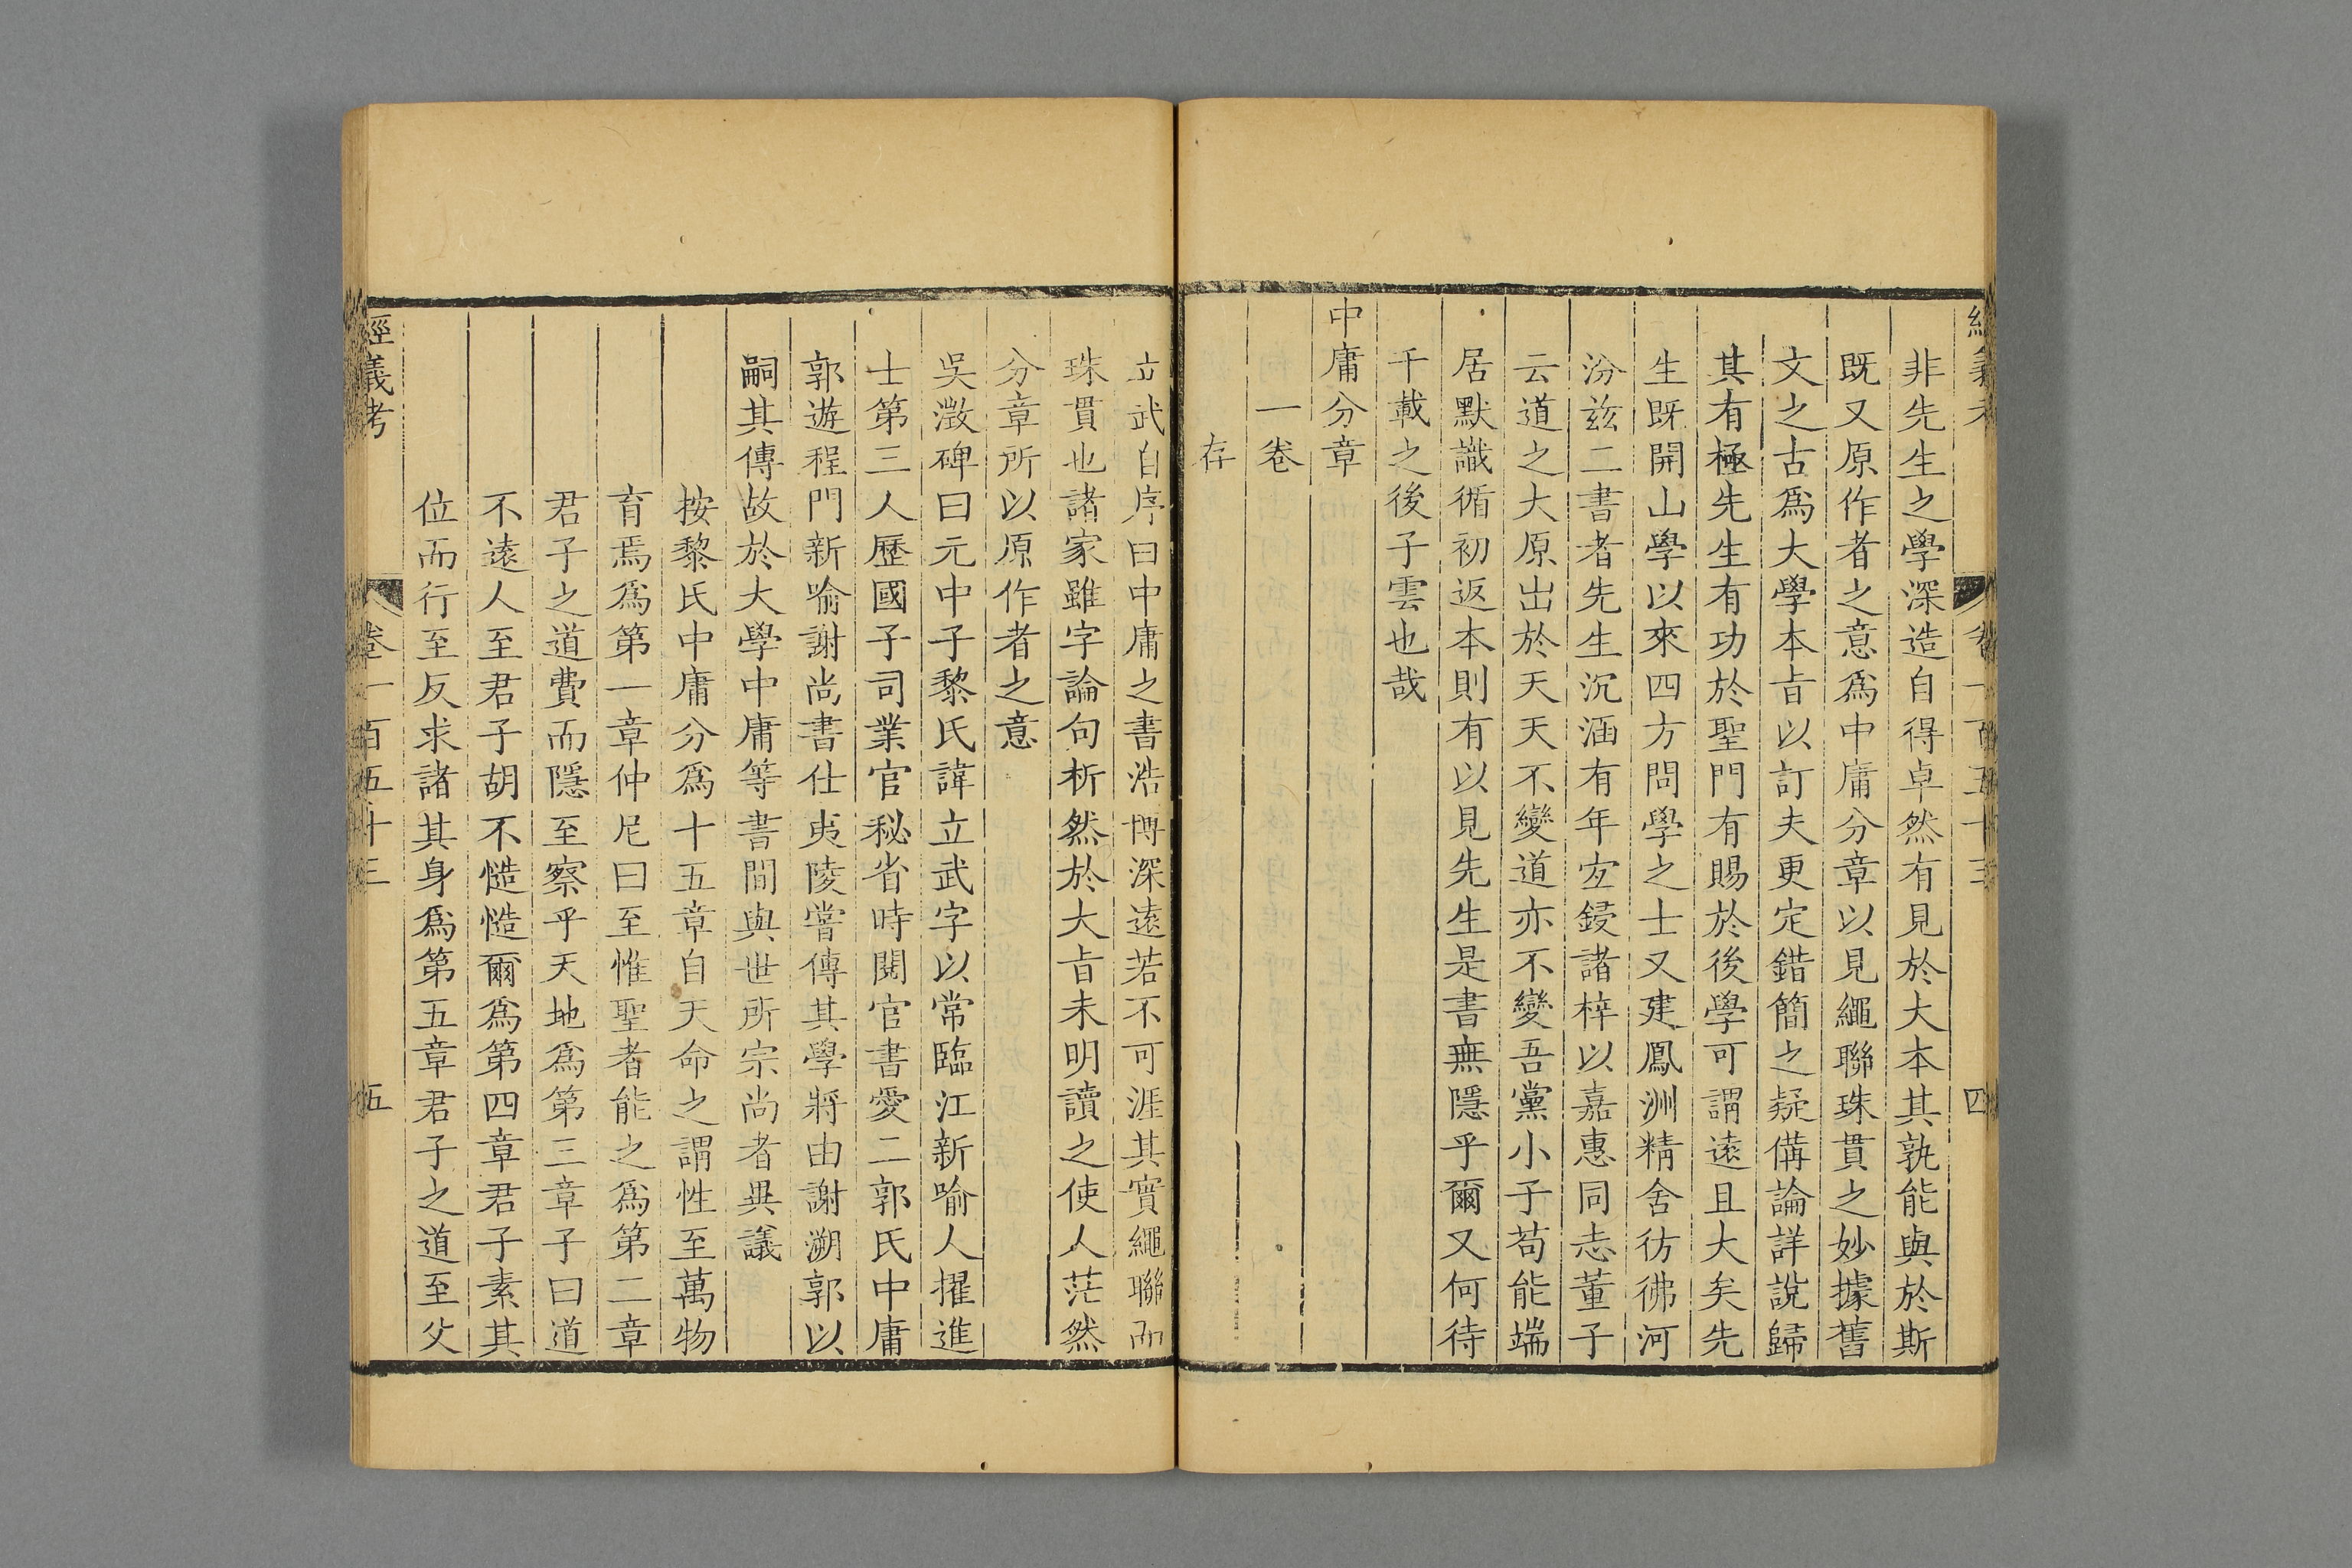 非先生之學深造自得卓然有見於大本其孰能與於斯
既又原作者之意爲中庸分章以見繩聯珠貫之妙據舊
文之古爲大學本㫖以訂夫更定錯簡之疑備論詳說歸
其有極先生有功於聖門有賜於後學可謂遠且大矣先
生既開山學以來四方問學之士又建鳳洲精舍彷彿河
汾兹二書者先生沉涵有年宻鋟諸梓以嘉惠同志董子
云道之大原出於天天不變道亦不變吾黨小子苟能端
居默識循初返本則有以見先生是書無隱乎爾又何待
千載之後子雲也哉
中庸分章
一卷
存
立武自序曰中庸之書浩博深遠若不可涯其實繩聯而
珠貫也諸家雖字論句析然於大㫖未明讀之使人茫然
分章所以原作者之意
吳澂碑曰元中子黎氏諱立武字以常臨江新喻人擢進
士第三人歷國子司業官秘省時閱官書愛二郭氏中庸
郭遊程門新喻謝尚書仕夷陵嘗傳其學將由謝溯郭以
嗣其傳故於大學中庸等書間與世所宗尚者異議
按黎氏中庸分爲十五章自天命之謂性至萬物
育焉爲第一章仲尼曰至惟聖者能之爲第二章
君子之道費而隱至察乎天地爲第三章子曰道
不遠人至君子胡不慥慥爾爲第四章君子素其
位而行至反求諸其身爲第五章君子之道至父
經義考 卷一百五十三 五